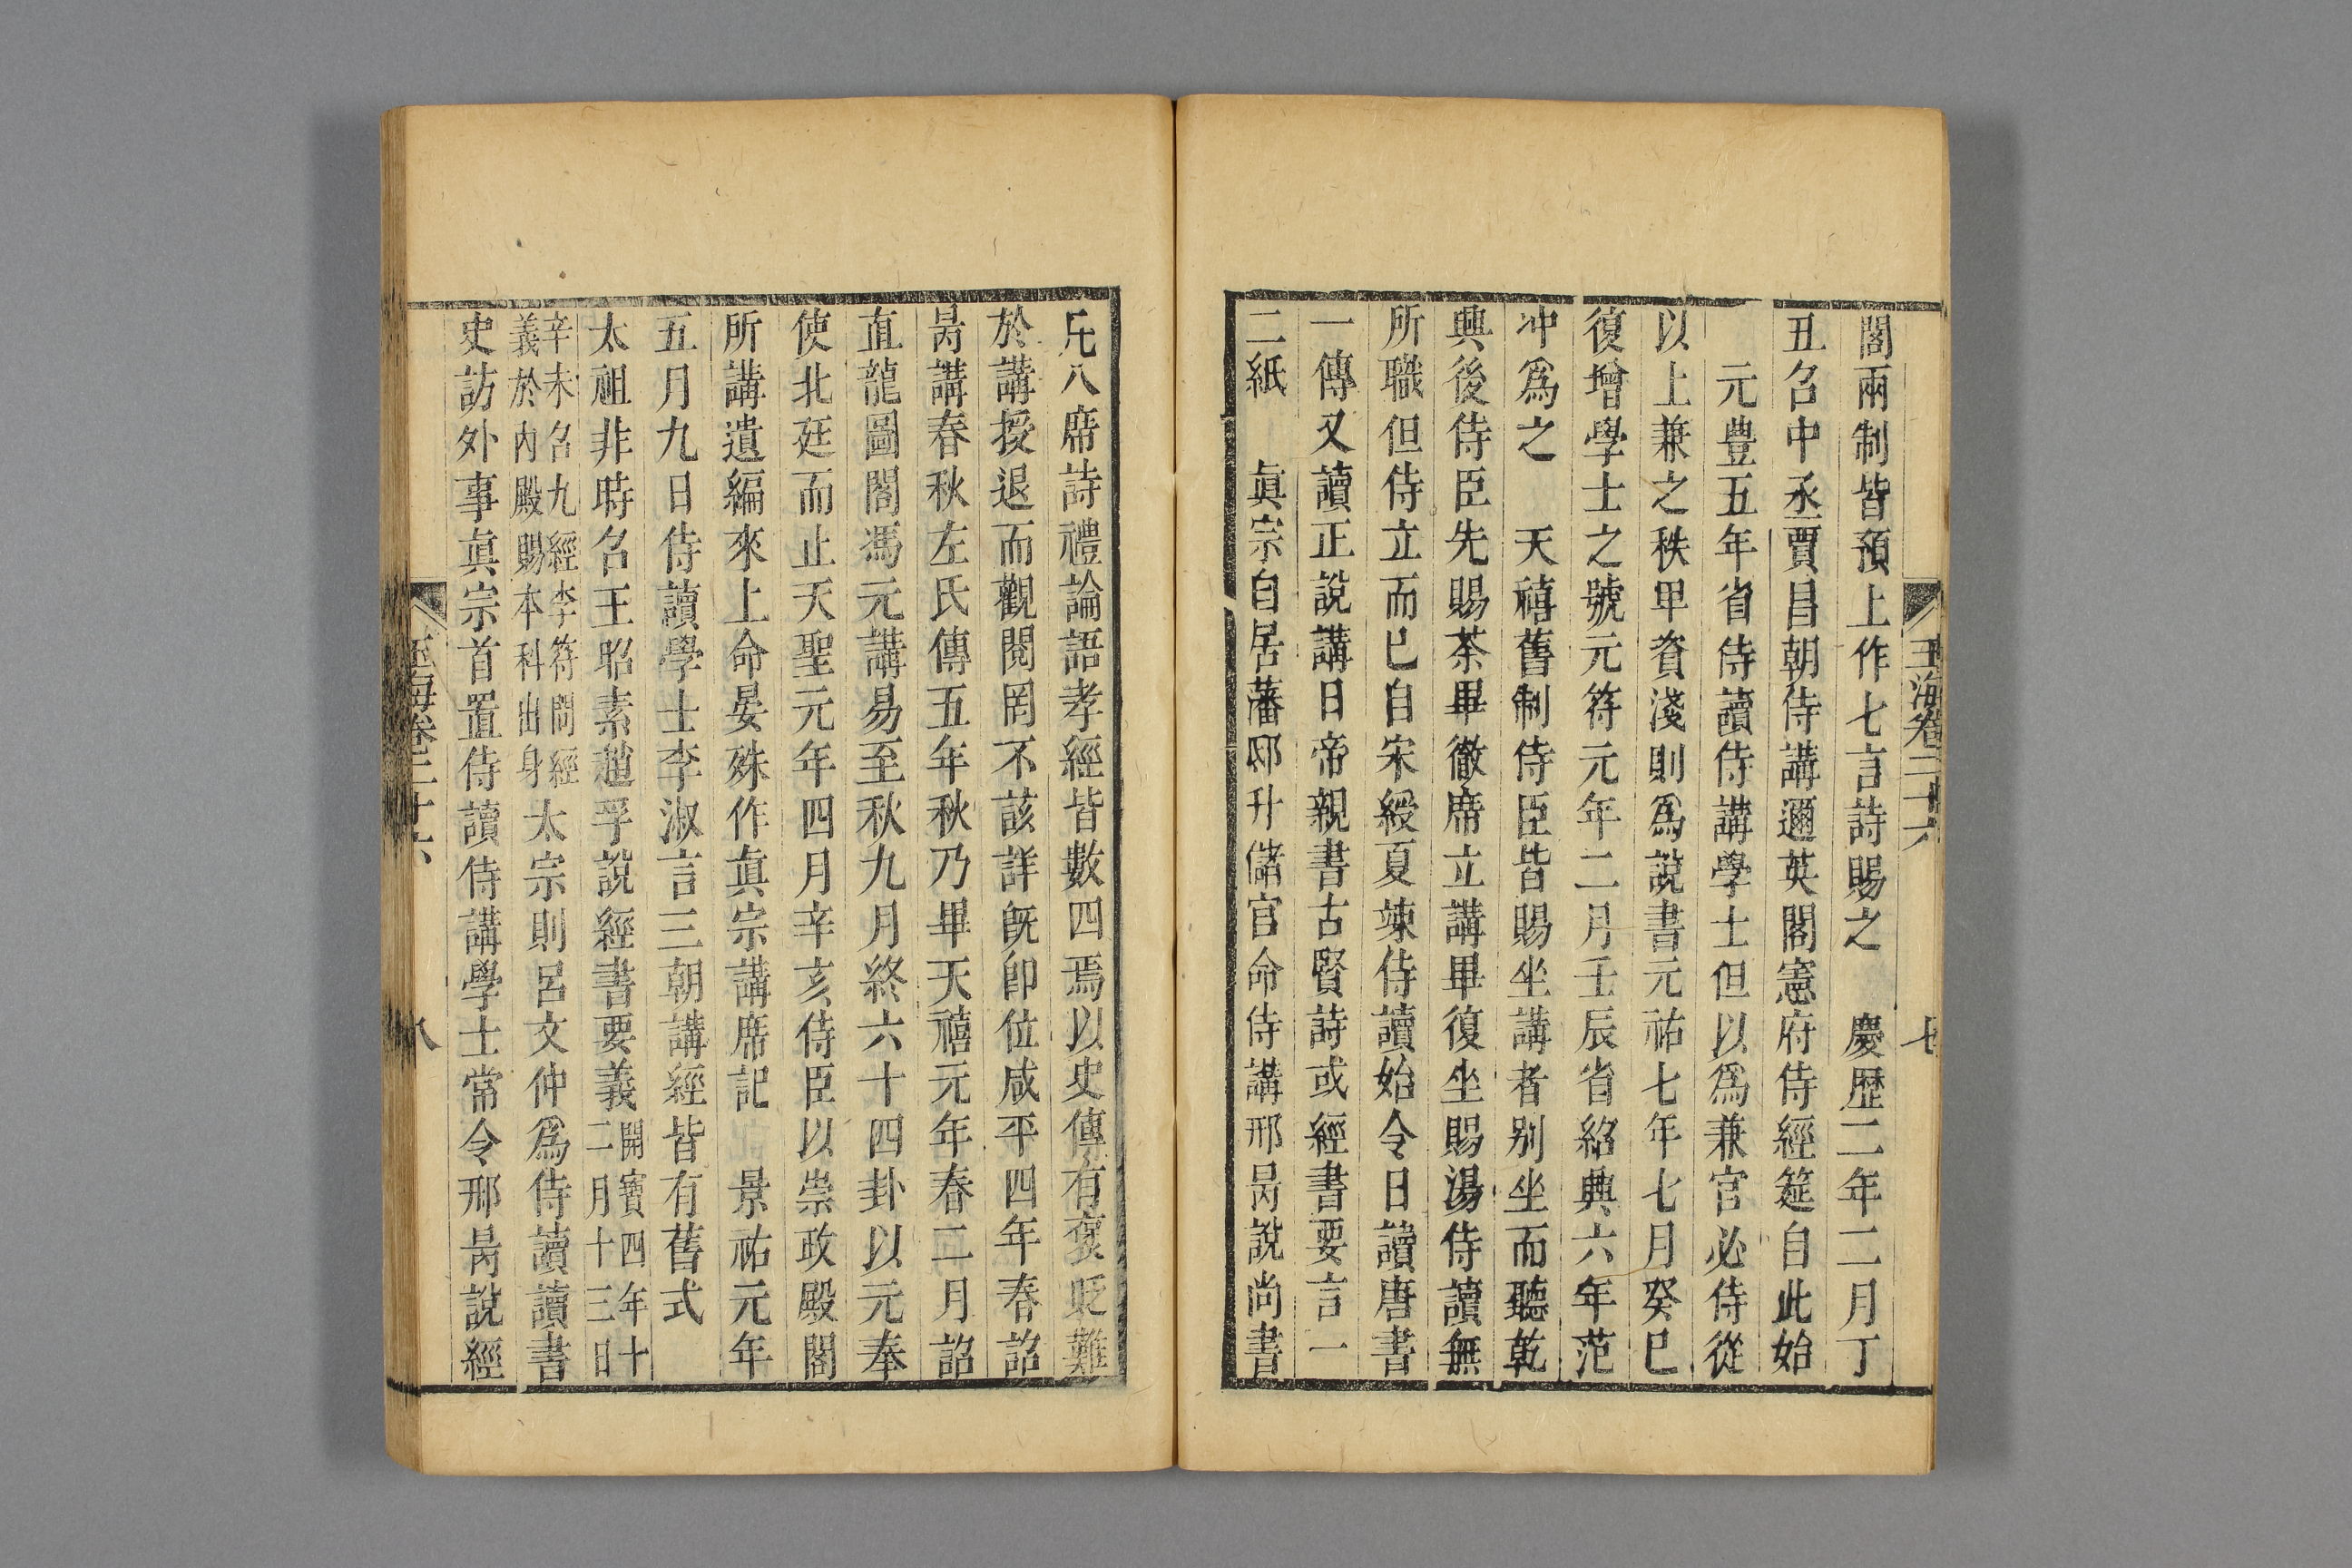 玉海卷二十六 七
閣兩制皆預上作七言詩賜之 慶歷二年二月丁
丑召中丞賈昌朝侍講邇英閣憲府侍經筵自此始
元豊五年省侍讀侍講學士但以爲兼官必侍從
以上兼之秩卑資淺則爲說書元祐七年七月癸巳
復增學士之號元符元年二月壬辰省紹興六年范
冲爲之 天禧舊制侍臣皆賜坐講者别坐而聽乾
興後侍臣先賜茶畢徹席立講畢復坐賜湯侍讀無
所職但侍立而已自宋綬夏竦侍讀始令日讀唐書
一傳又讀正說講日帝親書古賢詩或經書要言一
二紙 眞宗自居藩邸升儲宫命侍講邢昺說尚書
凡八席詩禮論語孝經皆數四焉以史傳有褒貶難
於講授退而觀閱罔不該詳旣卽位咸平四年春詔
昺講春秋左氏傳五年秋乃畢天禧元年春二月詔
直龍圖閣馮元講易至秋九月終六十四卦以元奉
使北廷而止天聖元年四月辛亥侍臣以崇政殿閣
所講遺編來上命晏殊作眞宗講席記 景祐元年
五月九日侍讀學士李淑言三朝講經皆有舊式
太祖非時召王昭素趙孚說經書要義開寶四年十二月十三日
辛未召九經李符問經義於內殿賜本科出身太宗則呂文仲爲侍讀讀書
史訪外事眞宗首置侍讀侍講學士常令邢昺說經
玉海卷二十六 八